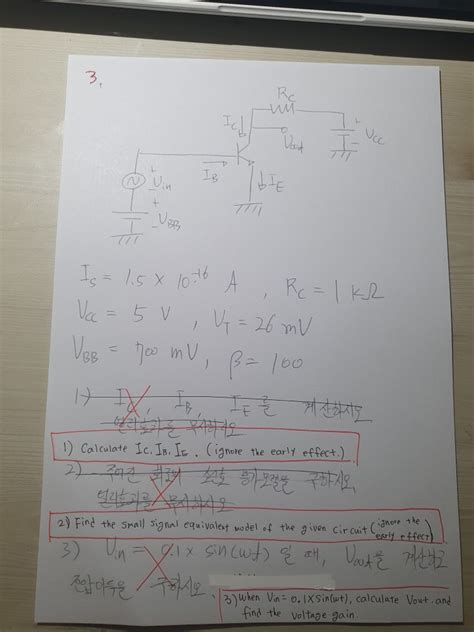 3.
Rc
Ic
Vout
Vcc
Vin
IB
IE
VBB
Is = 1.5 × 10^-16 A , Rc = 1 kΩ
Vcc = 5 V , VT = 26 mV
VBB = 700 mV, β = 100
1) Ic, IB, IE 를 계산하시오
얼리효과를 무시하시오
1) Calculate Ic. IB. IE. (ignore the early effect.)
2) 주어진 회로의 소신호 등가모델을 구하시오.
얼리효과를 무시하시오
2) Find the small signal equivalent model of the given circuit (ignore the early effect)
3) Vin = 0.1 × sin(wt) 일 때, Vout을 계산하고
전압이득을 구하시오.
3) When Vin = 0.1 × sin(wt), calculate Vout. and
find the voltage gain.